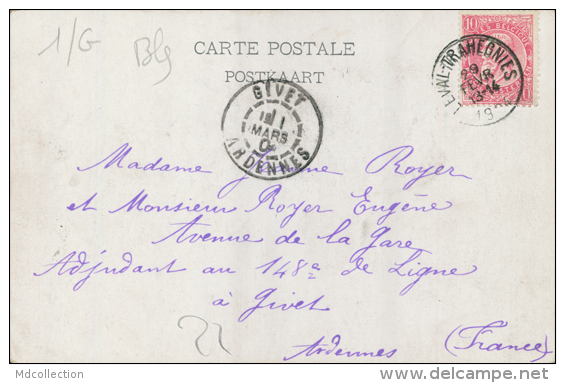 1/G
Blg
CARTE POSTALE
POSTKAART
10
LEVAL-TRAHEGNIES
29
FEVR
13-14
19
GIVET
1
MARS
ARDENNES
Madame Royer
et Monsieur Royer Eugène
Avenue de la Gare
Adjudant au 148e de Ligne
à Givet
22
Ardennes (France)
Mdcollection
www.delcampe.net